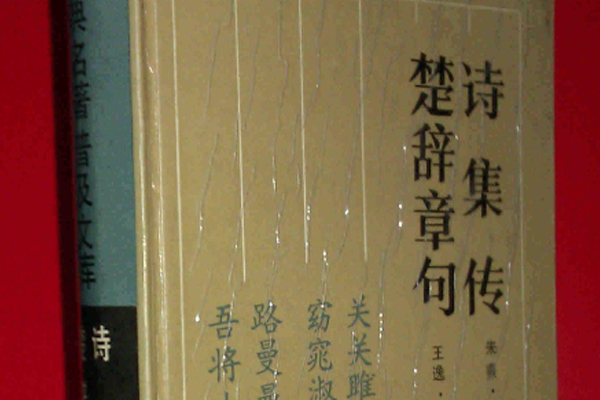 诗集传
楚辞章句
朱熹·
王逸·
关关雎
窈窕淑
路曼曼
吾将
典名著普及文库
诗